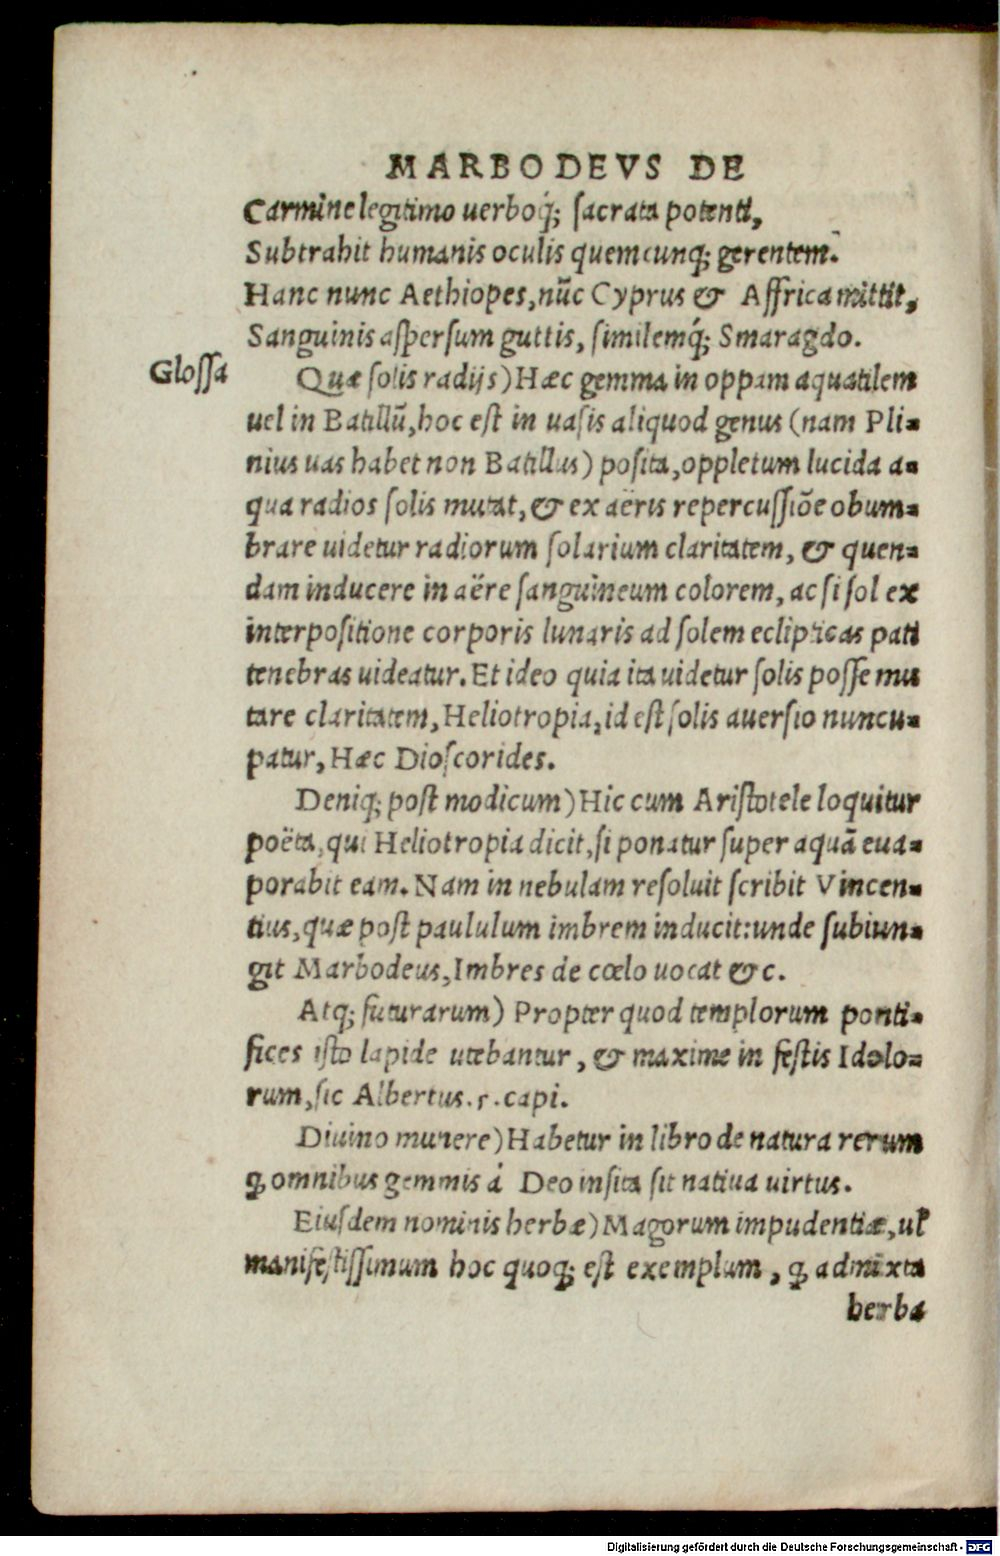 MARBODEVS DE
Carmine legitimo uerboq́; sacrata potenti,
Subtrahit humanis oculis quemcunq; gerentem.
Hanc nunc Aethiopes, nūc Cyprus & Affrica mittit,
Sanguinis aspersum guttis, similemq́; Smaragdo.
Glossa
Quæ solis radijs) Hæc gemma in oppam aquatilem
uel in Batillū, hoc est in uasis aliquod genus (nam Pli-
nius uas habet non Batillus) posita, oppletum lucida a-
qua radios solis mutat, & ex aëris repercussiōe obum-
brare uidetur radiorum solarium claritatem, & quen-
dam inducere in aëre sanguineum colorem, ac si sol ex
interpositione corporis lunaris ad solem eclipticas pati
tenebras uideatur. Et ideo quia ita uidetur solis posse mu
tare claritatem, Heliotropia, id est solis auersio nuncu-
patur, Hæc Dioscorides.
Deniq; post modicum) Hic cum Aristotele loquitur
poëta, qui Heliotropia dicit, si ponatur super aquā eua-
porabit eam. Nam in nebulam resoluit scribit Vincen-
tius, quæ post paululum imbrem inducit: unde subiun-
git Marbodeus, Imbres de cœlo uocat &c.
Atq; futurarum) Propter quod templorum ponti-
fices isto lapide utebantur, & maxime in festis Idolo-
rum, sic Albertus. 5. capi.
Diuino munere) Habetur in libro de natura rerum
ꝙ omnibus gemmis á Deo insita sit natiua uirtus.
Eiusdem nominis herbæ) Magorum impudentiæ, ul
manifestissimum hoc quoq; est exemplum, ꝙ admixta
herba
Digitalisierung gefördert durch die Deutsche Forschungsgemeinschaft - DFG